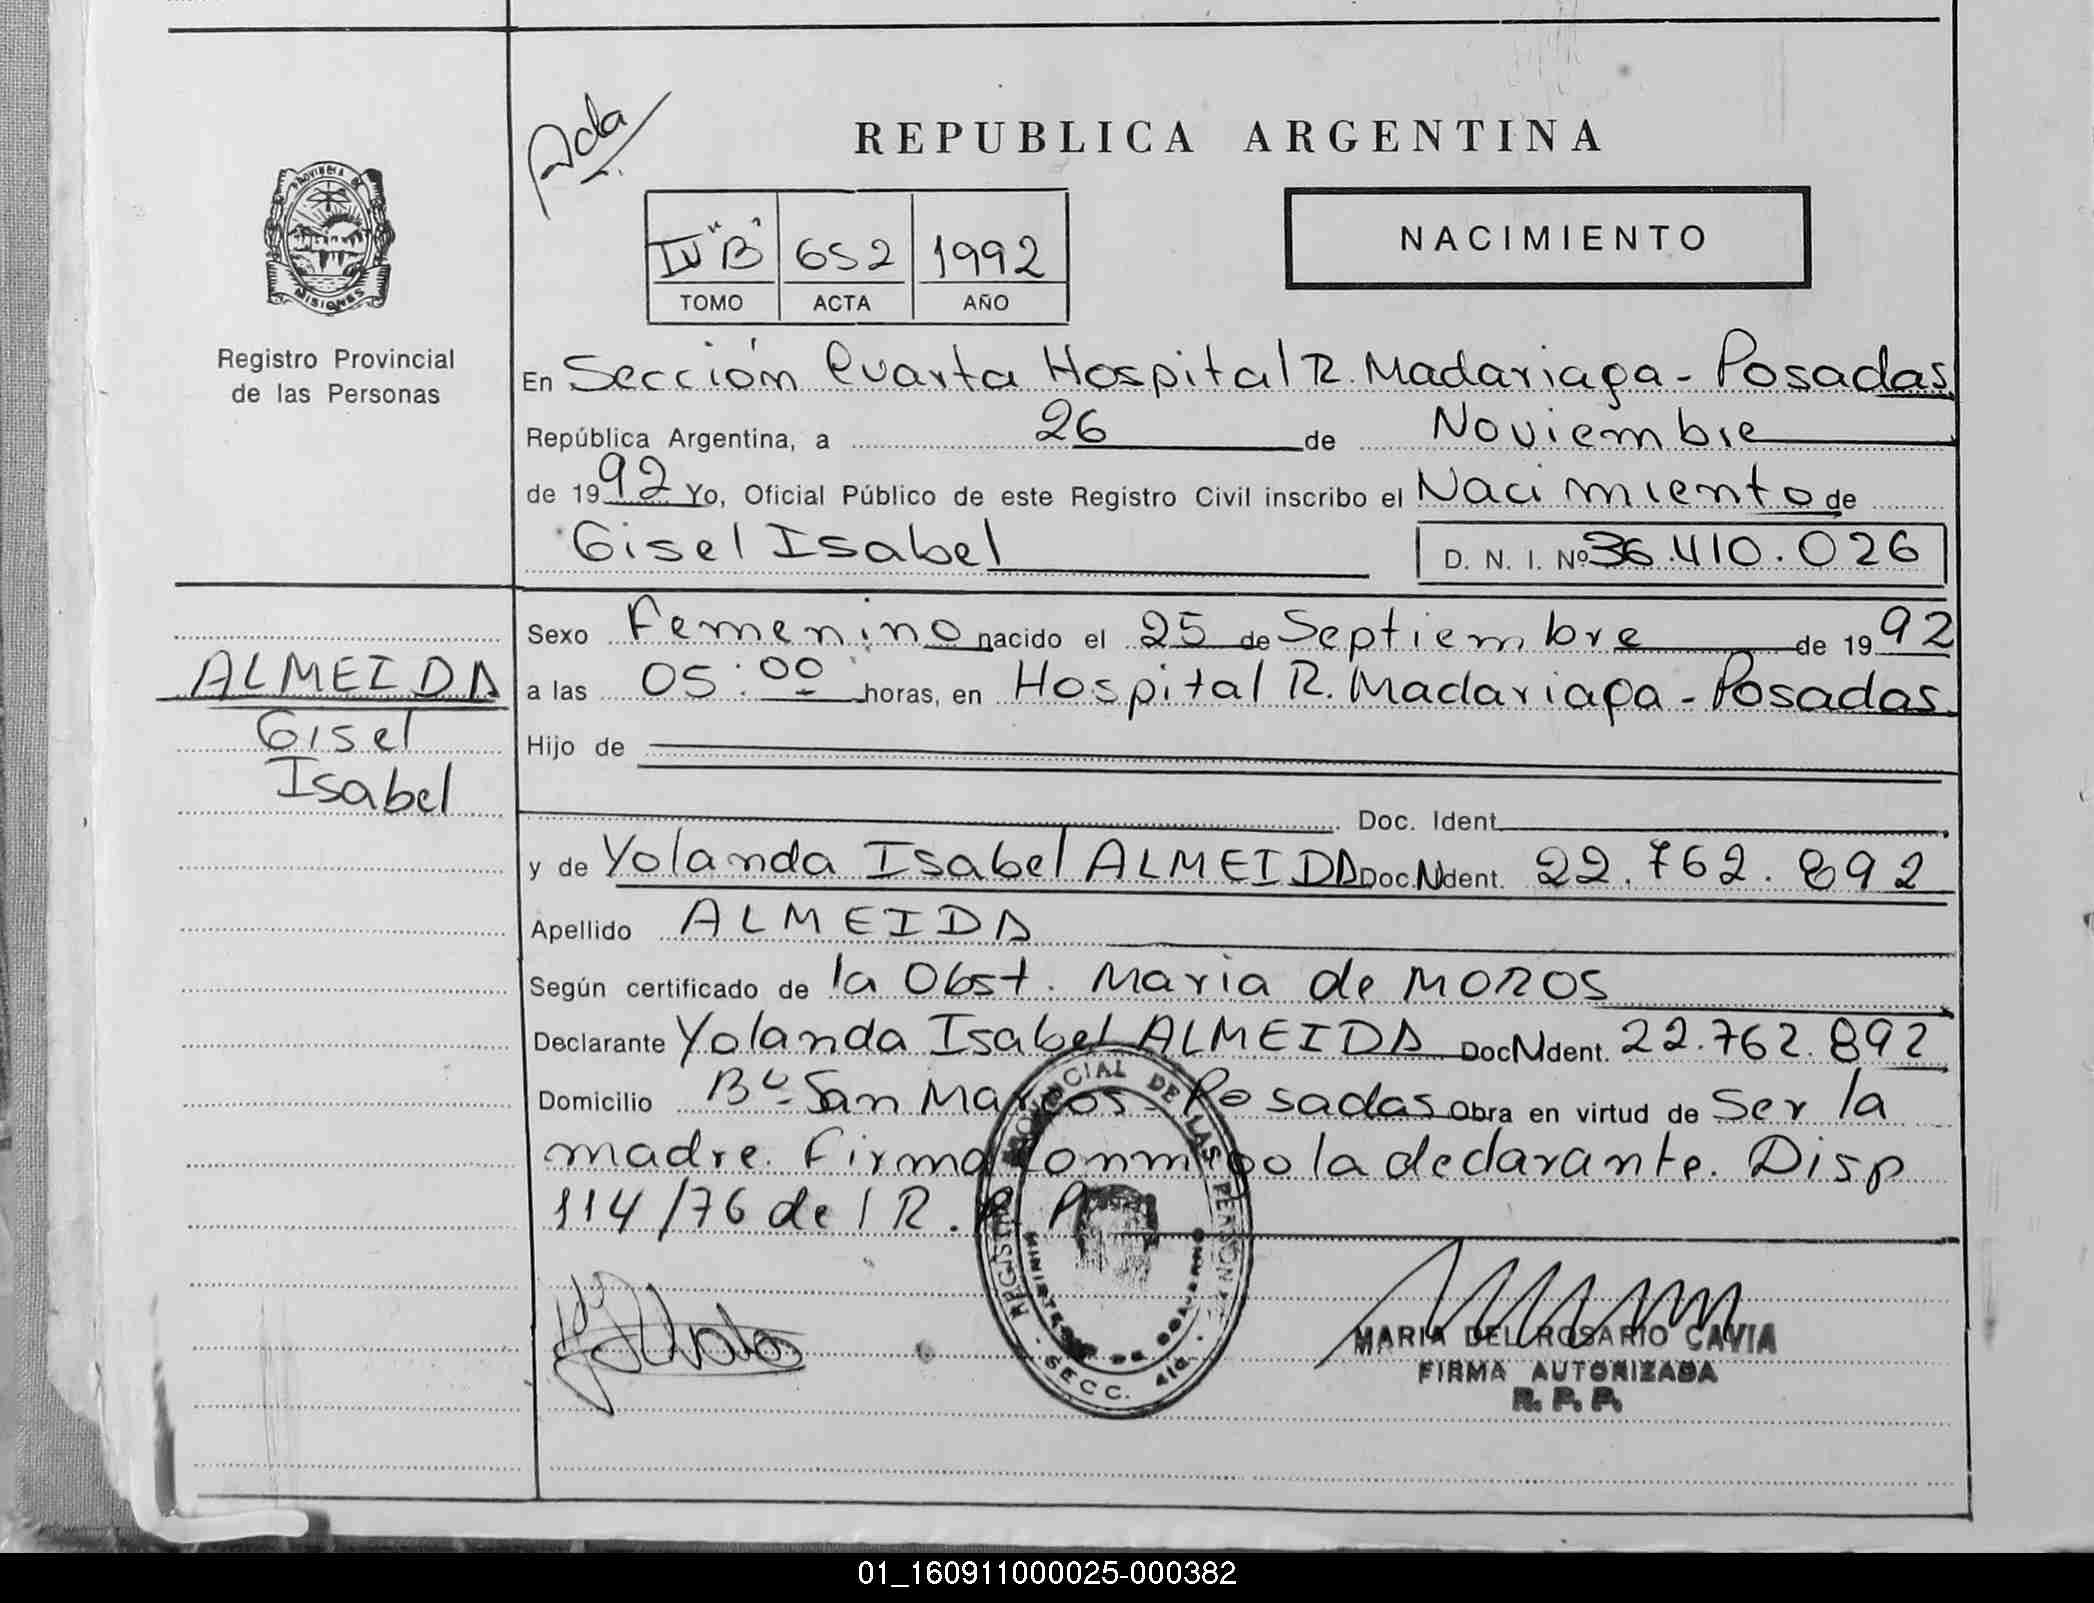 PROVINCIA DE
MISIONES
Registro Provincial
de las Personas
REPUBLICA ARGENTINA
IV "B" 652 1992
TOMO ACTA AÑO
NACIMIENTO
En Sección Cuarta Hospital R. Madariaga - Posadas
República Argentina, a 26 de Noviembre
de 1992 Yo, Oficial Público de este Registro Civil inscribo el Nacimiento de
Gisel Isabel D. N. I. Nº 36.410.026
ALMEIDA
Gisel
Isabel
Sexo Femenino nacido el 25 de Septiembre de 1992
a las 05:00 horas, en Hospital R. Madariaga - Posadas
Hijo de
Doc. Ident.
y de Yolanda Isabel ALMEIDA Doc. Ident. 22.762.892
Apellido ALMEIDA
Según certificado de la Obst. Maria de MOROS
Declarante Yolanda Isabel ALMEIDA Doc. Ident. 22.762.892
Domicilio Bº San Marcos - Posadas Obra en virtud de Ser la
madre. Firma Conmigo la declarante. Disp
114/76 del R. P. P.
REGISTRO PROVINCIAL DE LAS PERSONAS
MINISTERIO DE GOBIERNO
SECC. 4ta.
MARIA DEL ROSARIO CAVIA
FIRMA AUTORIZADA
R. P. P.
01_160911000025-000382